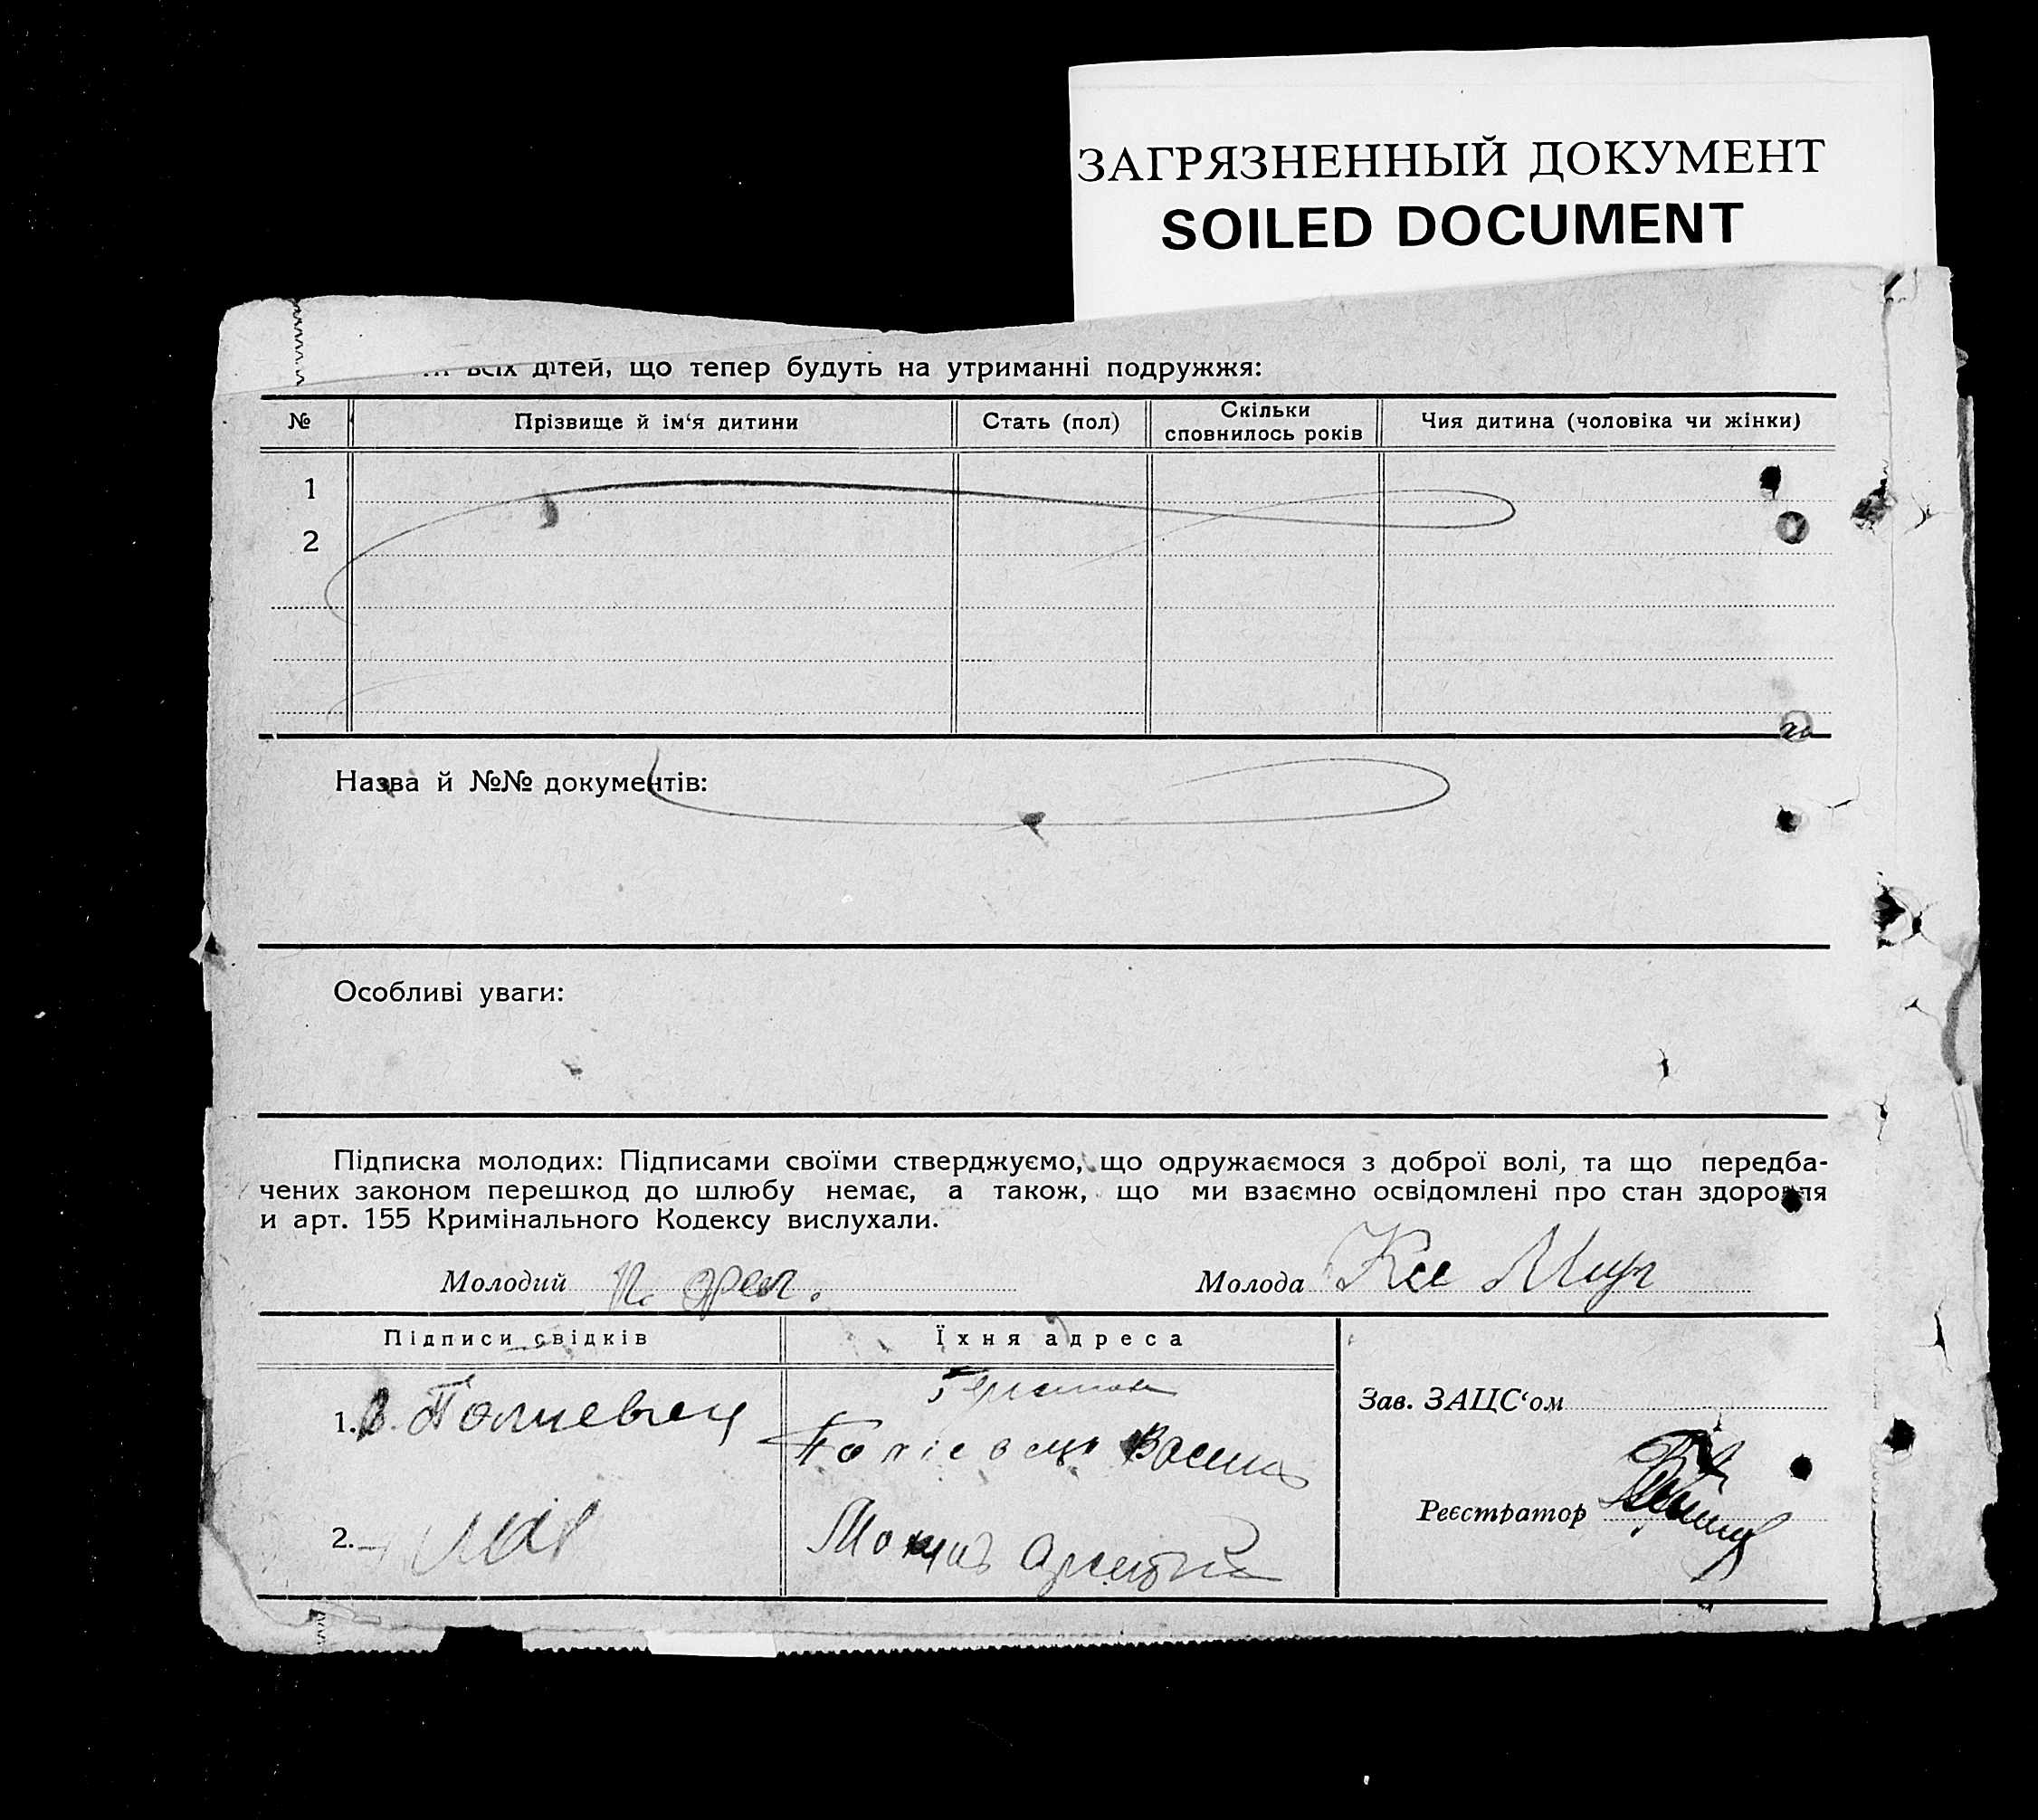 ЗАГРЯЗНЕННЫЙ ДОКУМЕНТ
SOILED DOCUMENT
всіх дітей, що тепер будуть на утриманні подружжя:
№ Прізвище й ім‘я дитини Стать (пол) Скільки сповнилось років Чия дитина (чоловіка чи жінки)
1
2
Назва й №№ документів:
Особливі уваги:
Підписка молодих: Підписами своїми стверджуємо, що одружаємося з доброї волі, та що передба-
чених законом перешкод до шлюбу немає, а також, що ми взаємно освідомлені про стан здоровля
и арт. 155 Кримінального Кодексу вислухали.
Молодий Молода
Підписи свідків Їхня адреса
Зав. ЗАЦС‘ом
1.
Реєстратор
2.